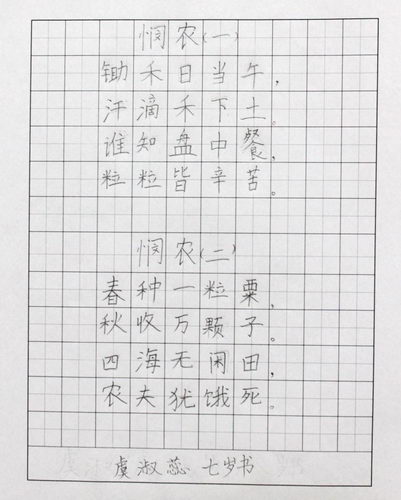 悯农(一)
锄禾日当午,
汗滴禾下土。
谁知盘中餐,
粒粒皆辛苦。
悯农(二)
春种一粒粟,
秋收万颗子。
四海无闲田,
农夫犹饿死。
虞淑蕊 七岁书